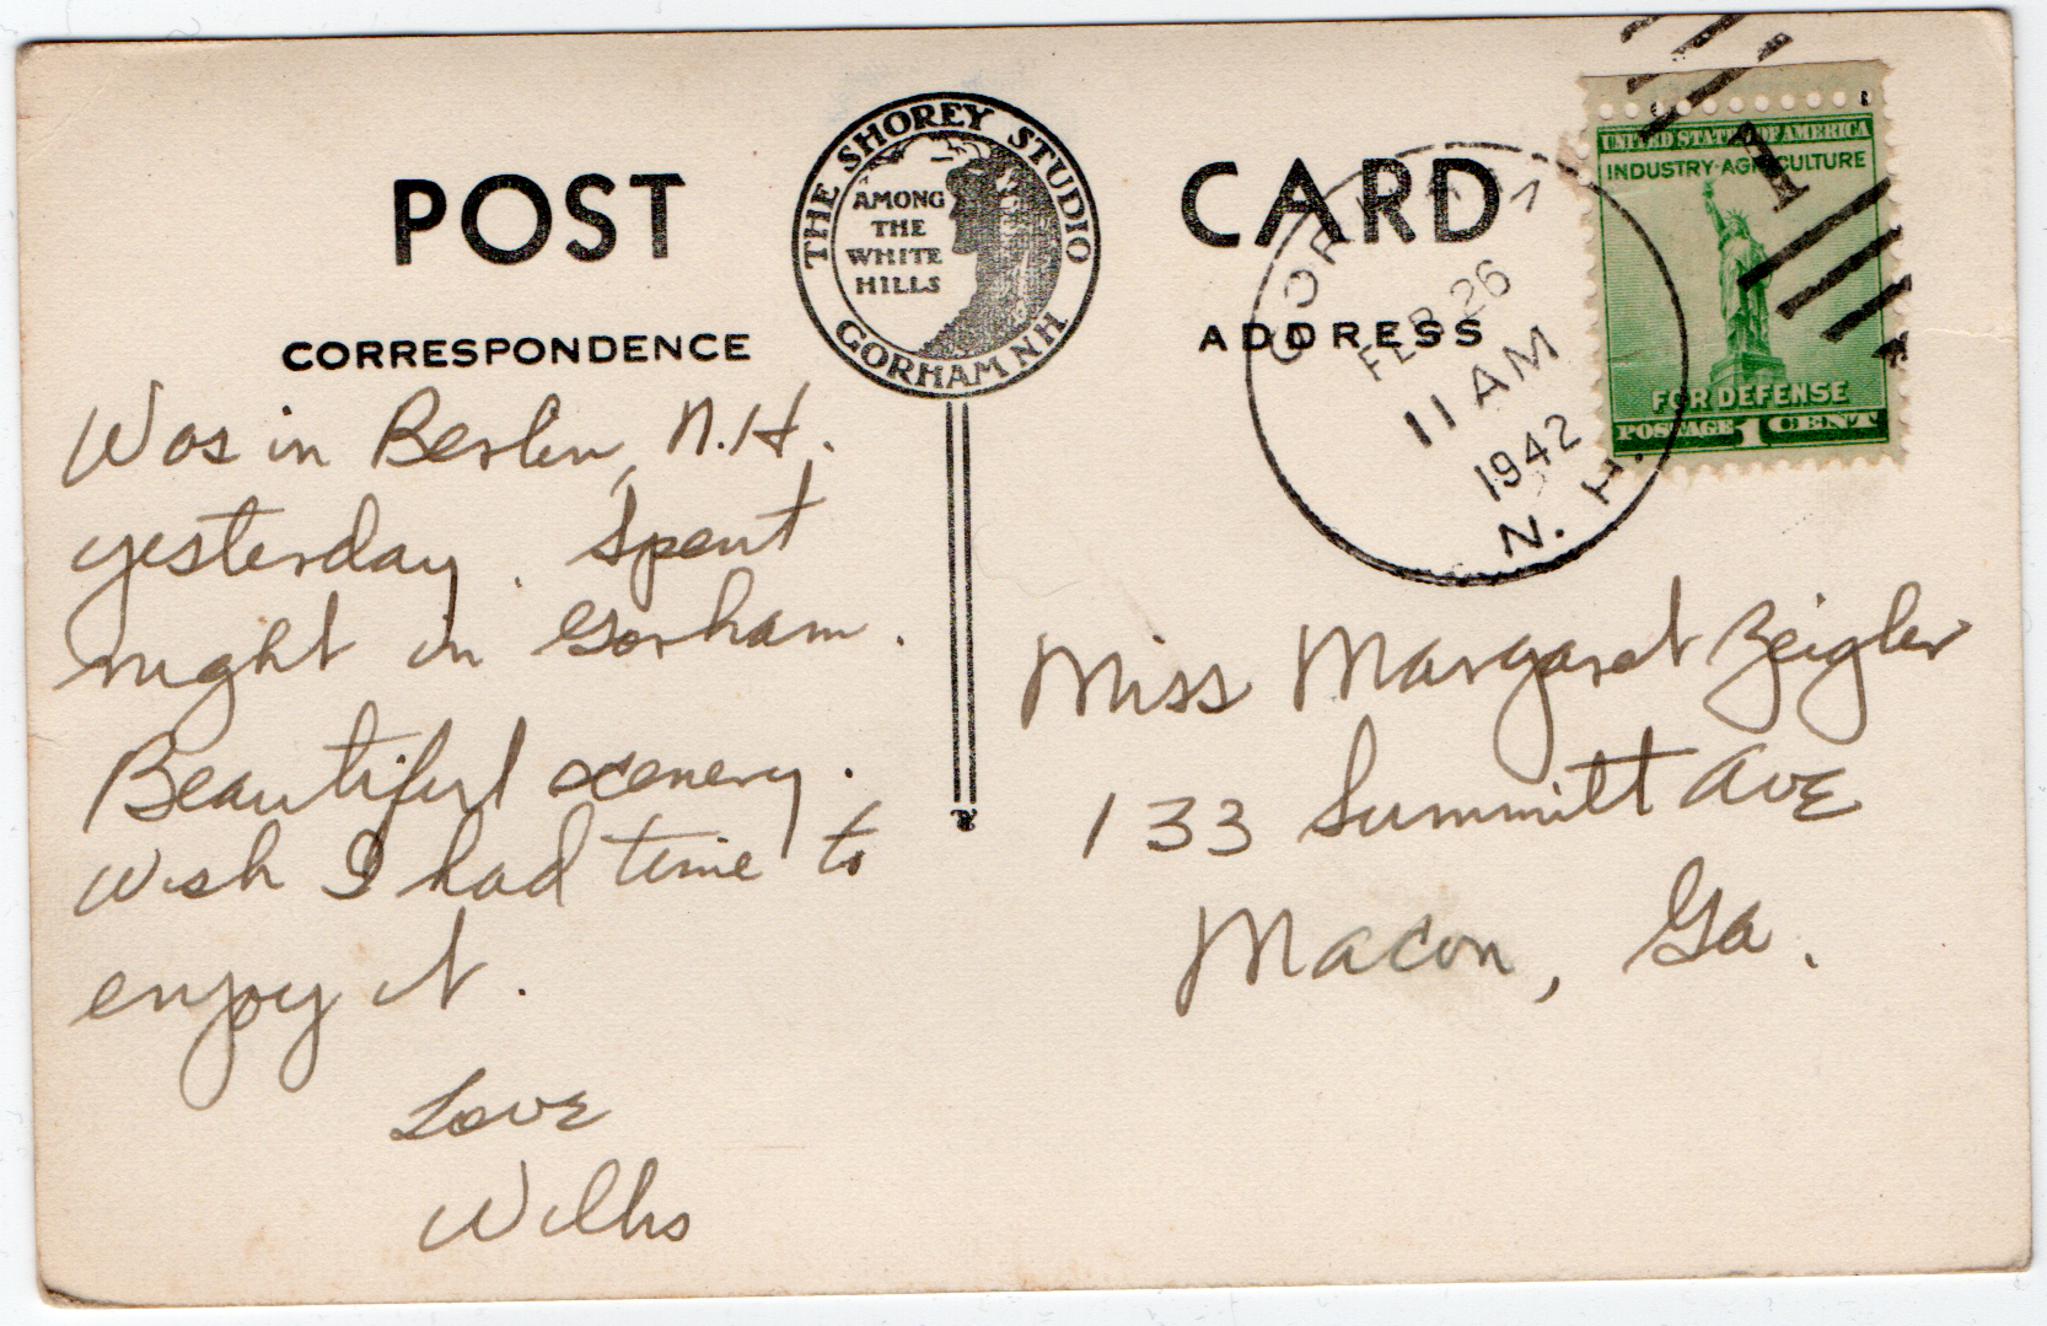 POST CARD
THE SHOREY STUDIO
AMONG
THE
WHITE
HILLS
GORHAM NH
CORRESPONDENCE
Was in Berlin, N.H.
yesterday. Spent
night in Gorham.
Beautiful scenery.
Wish I had time to
enjoy it.
Love
Willis
ADDRESS
GORHAM
FEB 26
11 AM
1942
N. H.
1
UNITED STATES OF AMERICA
INDUSTRY·AGRICULTURE
FOR DEFENSE
POSTAGE 1 CENT
Miss Margaret Zeigler
133 Summitt Ave
Macon, Ga.